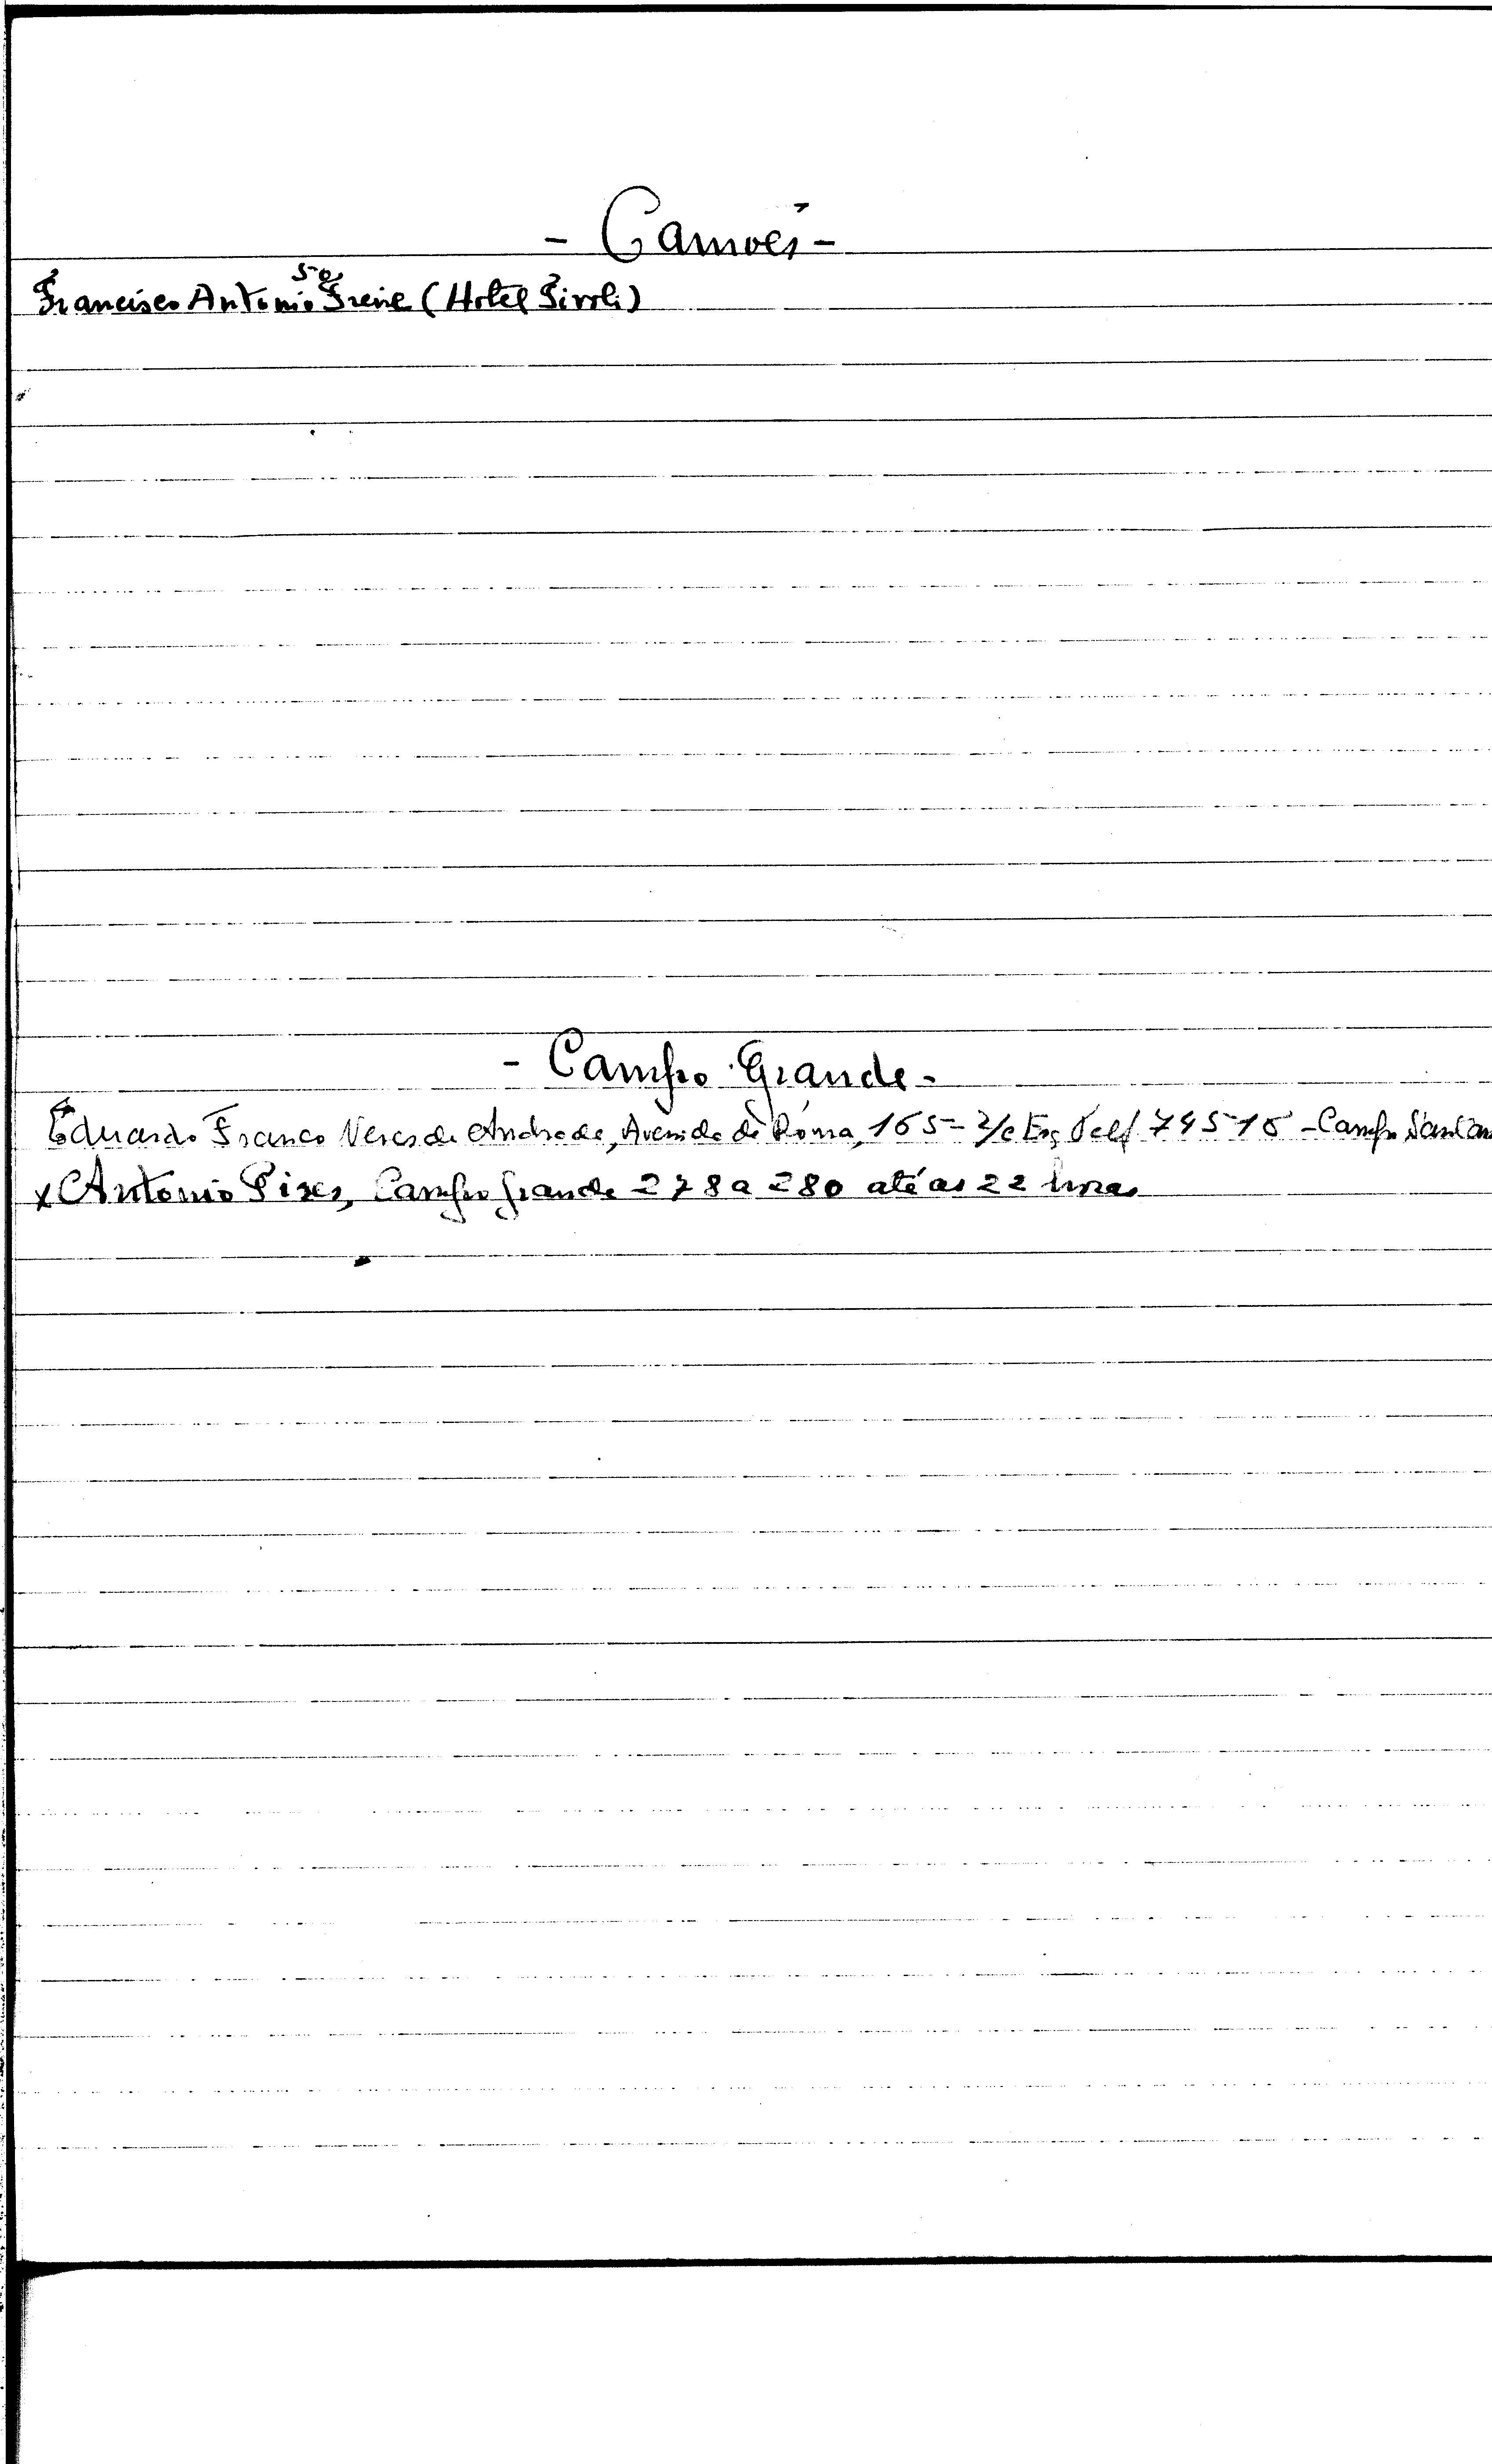 - Camões -
50
Francisco Antonio Freire (Hotel Tivoli)
- Campo Grande -
Eduardo Franco Neves de Andrade, Avenida de Roma, 165 - 2/c Esq. Telf. 74515 - Campo
x Antonio Pires, Campo Grande 278 a 280 até as 22 horas